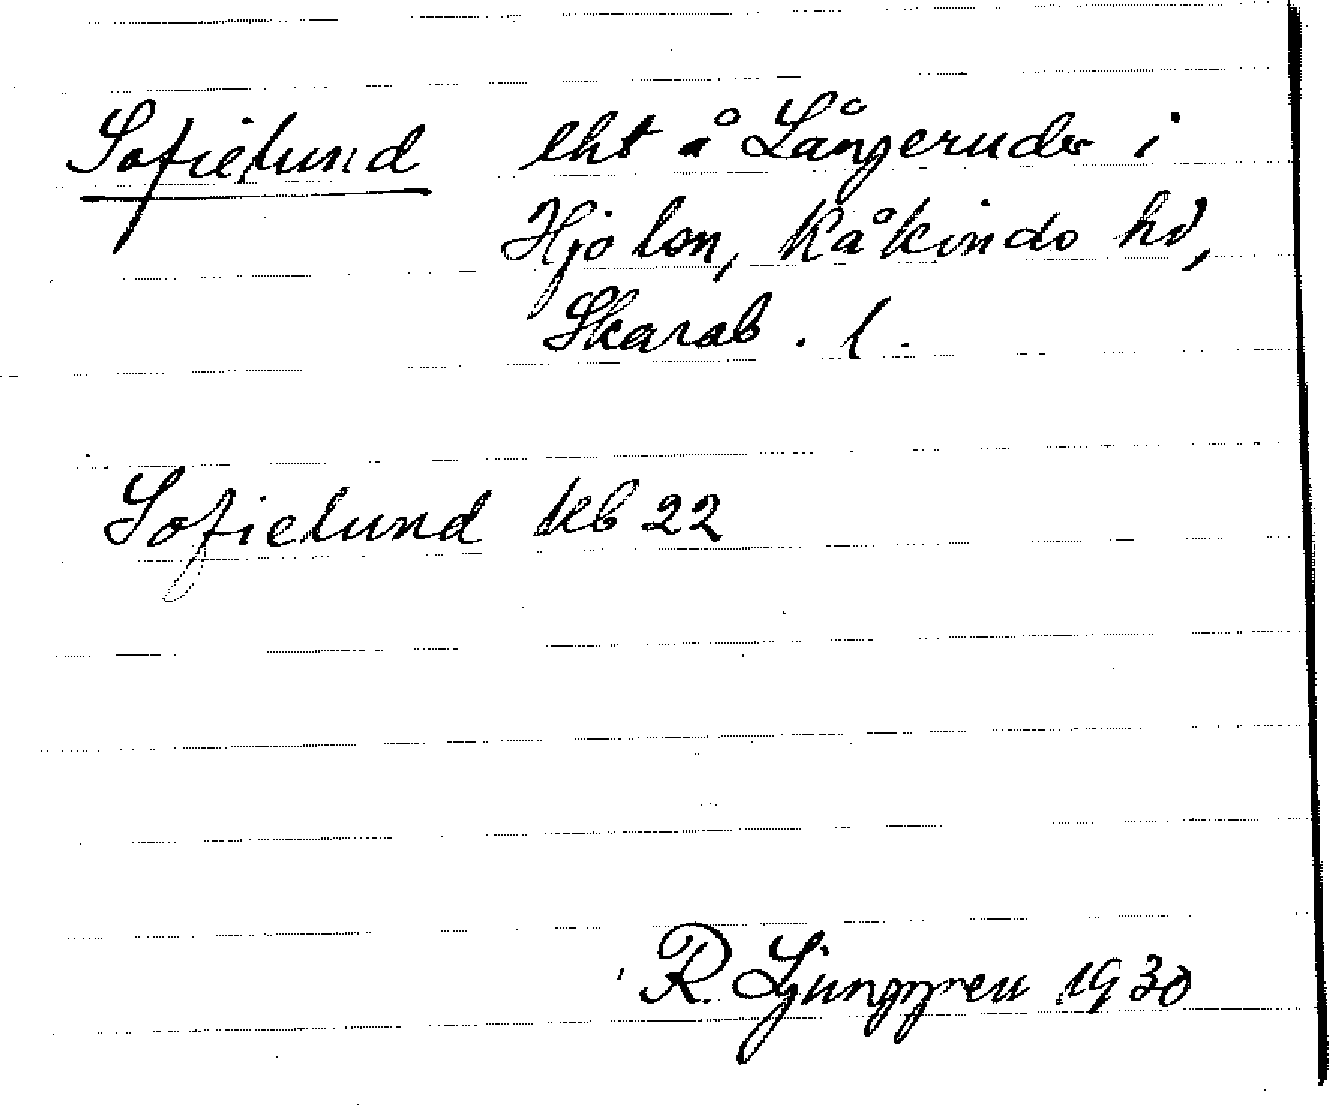 Sofielund lht å Långerudes i
Hjo lsn, Kåkinds hd,
Skarab. l.
Sofielund kb 22
R. Ljunggren 1930